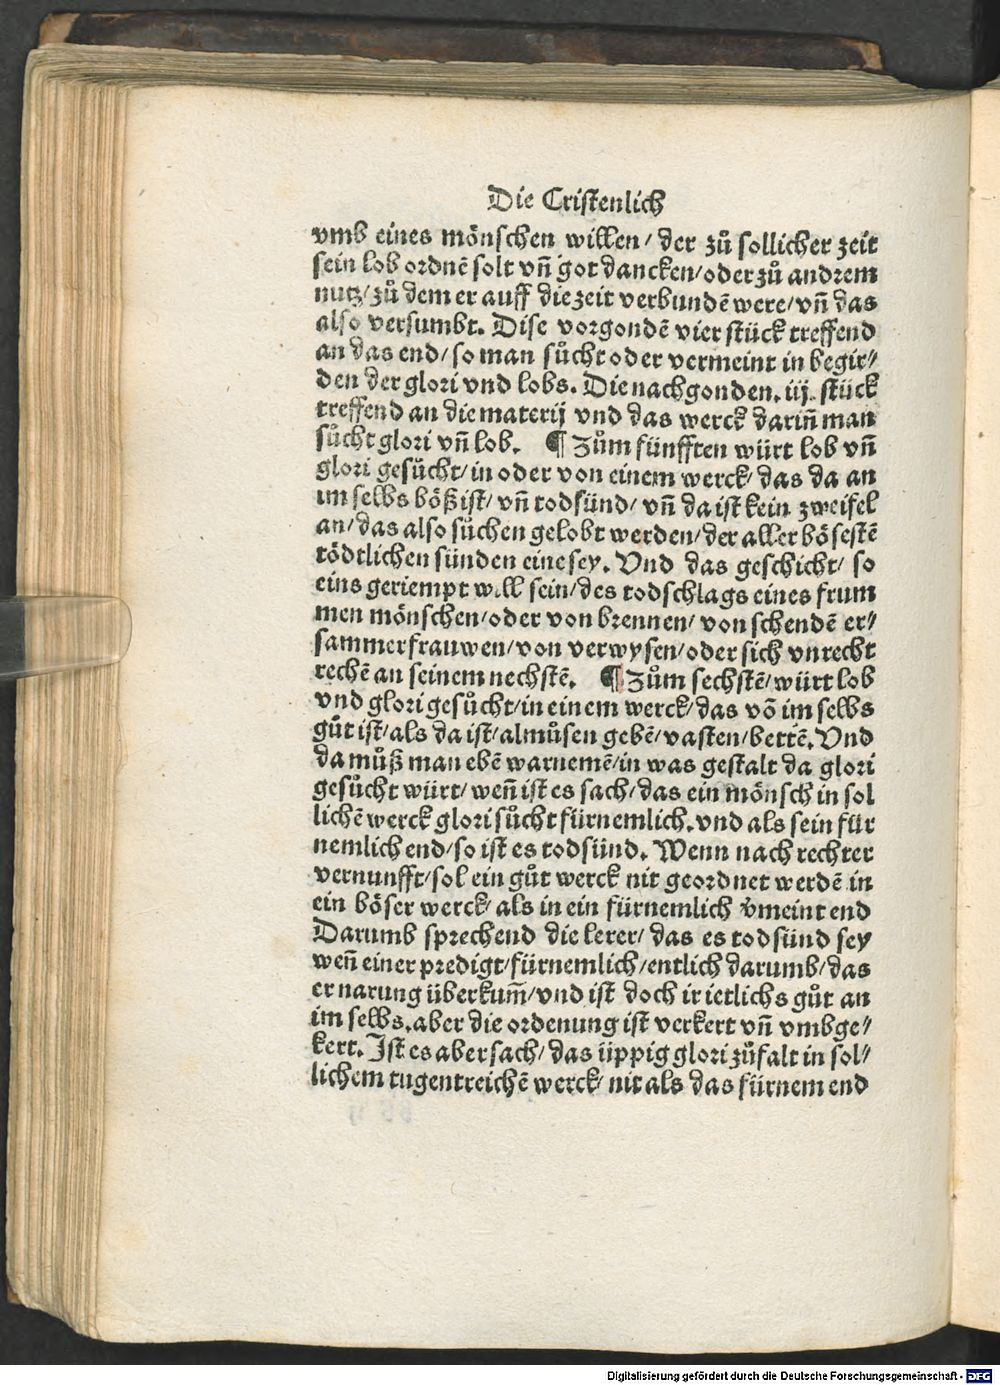 Die Cristenlich
vmb eines mönschen willen/ der zů sollicher zeit
sein lob ordnē solt vn̄ got dancken/oder zů andrem
nutz/zů dem er auff die zeit verbundē were/vn̄ das
also versumbt. Dise vorgondē vier stück treffend
an das end/so man sůcht oder vermeint in begir⸗
den der glori vnd lobs. Die nachgonden.iij.stück
treffend an die materij vnd das werck darin̄ man
sůcht glori vn̄ lob. ¶ Zům fünfften würt lob vn̄
glori gesůcht/in oder von einem werck/das da an
im selbs bößist/vn̄ todsünd/vn̄ da ist kein zweifel
an/das also sůchen gelobt werden/der aller bösestē
tödtlichen sünden eine sey. Vnd das geschicht/ so
eins geriempt will sein/des todschlags eines frum
men mönschen/oder von brennen/von schendē er⸗
sammer frauwen/von verwysen/oder sich vnrecht
rechē an seinem nechstē. ¶ Zům sechstē/würt lob
vnd glori gesůcht/in einem werck/das vō im selbs
gůt ist/als da ist/almůsen gebē/vasten/bettē.Vnd
da můß man ebē warnemē/in was gestalt da glori
gesůcht würt/wen̄ ist es sach/das ein mönsch in sol
lichē werck glori sůcht fürnemlich.vnd als sein für
nemlich end/so ist es todsünd. Wenn nach rechter
vernunfft/sol ein gůt werck nit geordnet werdē in
ein böser werck/als in ein fürnemlich v̄meint end
Darumb sprechend die lerer/das es todsünd sey
wen̄ einer predigt/fürnemlich/entlich darumb/das
er narung überkum̄/vnd ist doch ir ietlichs gůt an
im selbs.aber die ordenung ist verkert vn̄ vmbge⸗
kert. Ist es aber sach/das üppig glori zůfalt in sol⸗
lichem tugentreichē werck/nit als das fürnem end
Digitalisierung gefördert durch die Deutsche Forschungsgemeinschaft - DFG